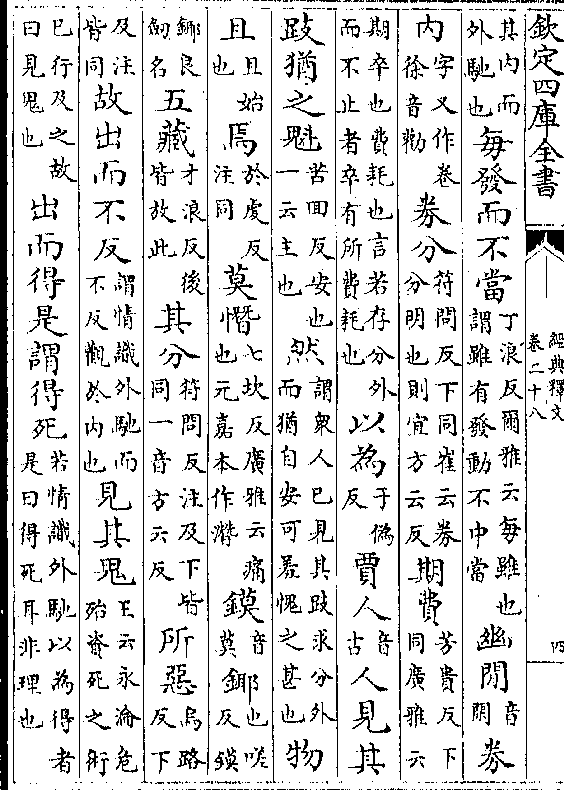 欽定四庫全書
經典釋文
卷二十八
四
其内而外馳也每發而不當丁浪反爾雅云每雖也謂雖有發動不中當幽閒音閑券
内字又作卷徐音勸券分符問反下同崔云券分明也則宜方云反期費芳貴反下同廣雅云
期卒也費耗也言若存分外而不止者卒有所費耗也以為于偽反賈人音古人見其
跂猶之魁苦回反安也一云主也然謂衆人已見其跂求分外而猶自安可羞愧之甚也物
且且始也焉於虔反注同莫憯七坎反廣雅云痛也元嘉本作濳鏌音莫鋣也嗟反鏌
鋣良劒名五藏才浪反後皆放此其分符問反注及下皆同一音方云反所惡烏路反下
及注皆同故出而不反謂情識外馳而不反觀於内也見其鬼王云永淪危殆資死之術
已行及之故曰見鬼也出而得是謂得死若情識外馳以為得者是曰得死耳非理也